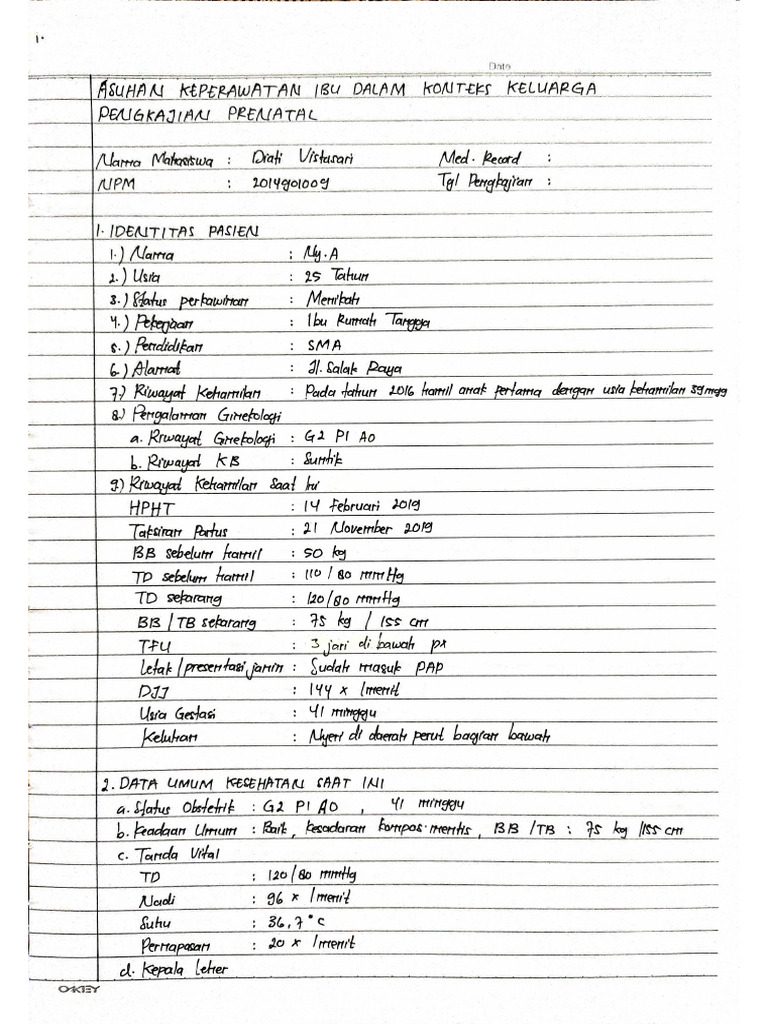 1.
Date
ASUHAN KEPERAWATAN IBU DALAM KONTEKS KELUARGA
PENGKAJIAN PRENATAL
Nama Mahasiswa : Drati Vistasari Med. Record :
NPM : 2014901009 Tgl Pengkajian :
1. IDENTITAS PASIEN
1.) Nama : Ny. A
2.) Usia : 25 Tahun
3.) Status perkawinan : Menikah
4.) Pekerjaan : Ibu Rumah Tangga
5.) Pendidikan : SMA
6.) Alamat : Jl. Salak Raya
7.) Riwayat Kehamilan : Pada tahun 2016 hamil anak pertama dengan usia kehamilan 39 mgg
8.) Pengalaman Ginekologi
a. Riwayat Ginekologi : G2 P1 A0
b. Riwayat KB : Suntik
9.) Riwayat Kehamilan Saat Ini
HPHT : 14 Februari 2019
Taksiran Partus : 21 November 2019
BB sebelum hamil : 50 kg
TD sebelum hamil : 110 / 80 mmHg
TD sekarang : 120/80 mmHg
BB / TB sekarang : 75 kg / 155 cm
TFU : 3 jari di bawah px
Letak / presentasi janin : Sudah masuk PAP
DJJ : 144 x /menit
Usia Gestasi : 41 minggu
Keluhan : Nyeri di daerah perut bagian bawah
2. DATA UMUM KESEHATAN SAAT INI
a. Status Obstetrik : G2 P1 A0 , 41 minggu
b. Keadaan Umum : Baik, kesadaran kompos mentis, BB / TB : 75 kg /155 cm
c. Tanda Vital
TD : 120/80 mmHg
Nadi : 96 x /menit
Suhu : 36,7 °C
Pernapasan : 20 x /menit
d. Kepala Leher
O-KEY